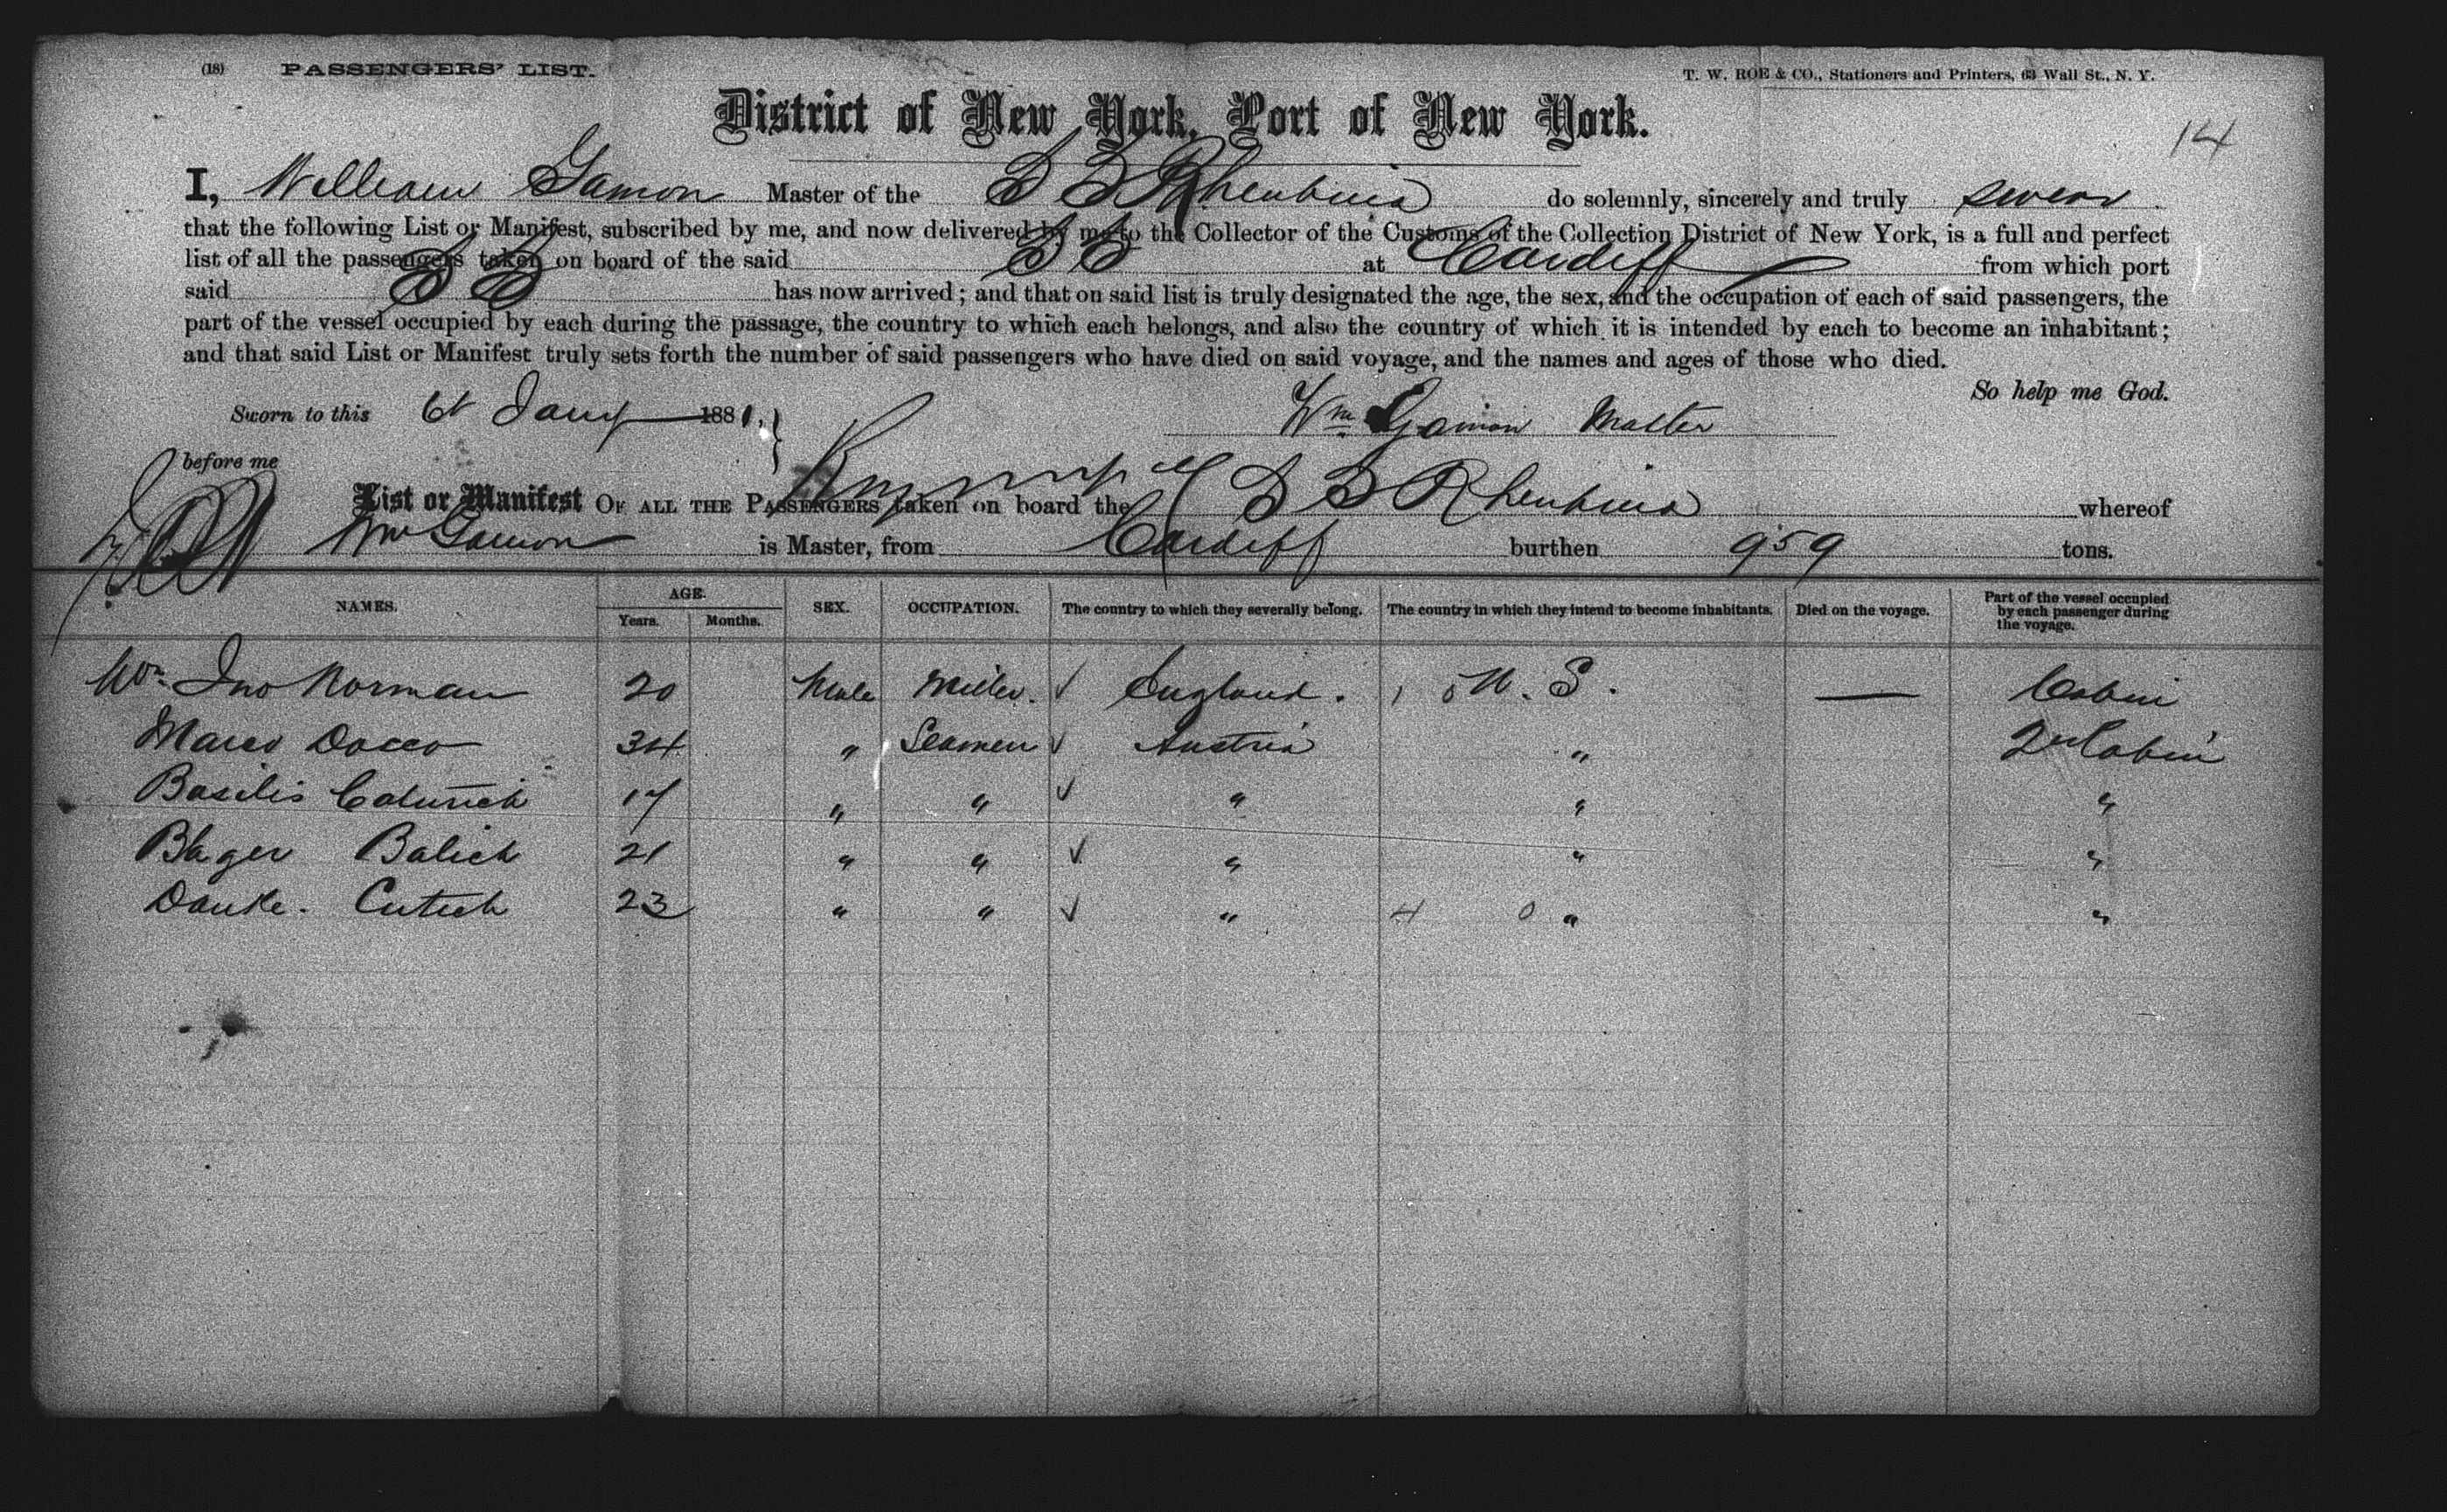 (18) PASSENGERS' LIST. T. W. ROE & CO., Stationers and Printers, 63 Wall St., N. Y.
District of New York, Port of New York.
14
I, William Gamon Master of the S S Rhenbina do solemnly, sincerely and truly swear
that the following List or Manifest, subscribed by me, and now delivered by me to the Collector of the Customs of the Collection District of New York, is a full and perfect
list of all the passengers taken on board of the said SS at Cardiff from which port
said SS has now arrived; and that on said list is truly designated the age, the sex, and the occupation of each of said passengers, the
part of the vessel occupied by each during the passage, the country to which each belongs, and also the country of which it is intended by each to become an inhabitant;
and that said List or Manifest truly sets forth the number of said passengers who have died on said voyage, and the names and ages of those who died.
So help me God.
Sworn to this 6t Jany 1881. Wm Gamon Master
before me
List or Manifest OF ALL THE PASSENGERS taken on board the S S Rhenbina whereof
Wm Gamon is Master, from Cardiff burthen 959 tons.
NAMES. AGE. Years. Months. SEX. OCCUPATION. The country to which they severally belong. The country in which they intend to become inhabitants. Died on the voyage. Part of the vessel occupied by each passenger during the voyage.
Jno Norman 20 Male Miller. ✓ England. 1 0 U. S. — Cabin
Marco Docco 34 " Seamen ✓ Austria " 2d Cabin
Basilis 17 " " ✓ " " "
Balich 21 " " ✓ " " "
Danke. Cutich 23 " " ✓ " 4 0 " "